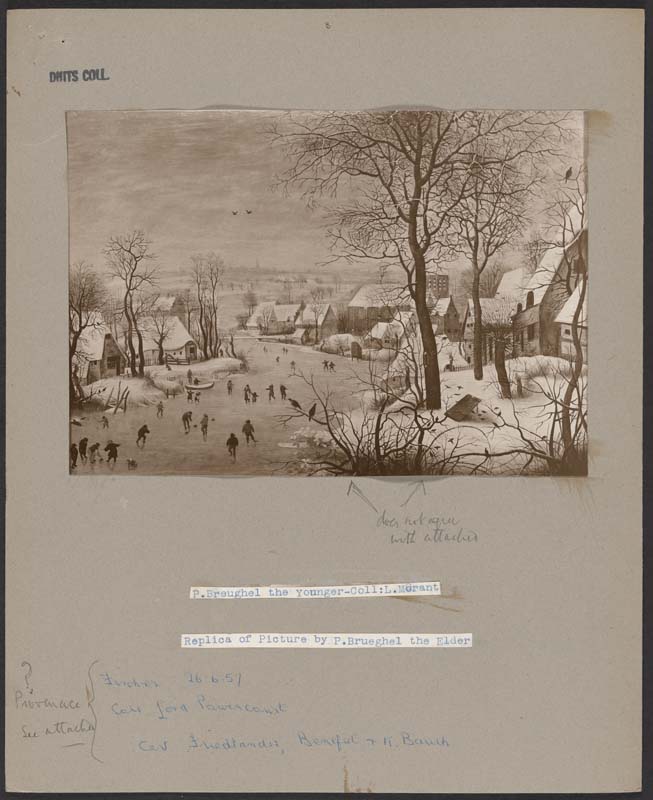 DWITS COLL.
does not agree
with attached
P.Breughel the Younger-Coll:L.Morant
Replica of Picture by P.Brueghel the Elder
?
Provenance
See attached
Fischer 26.6.57
Coll Lord Powerscourt
Cat Friedlander, & K. Bauch